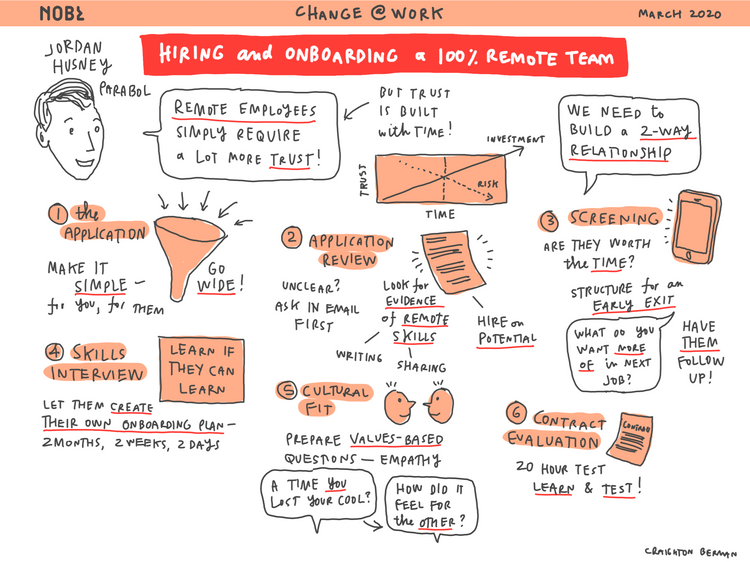 NOBL
CHANGE @ WORK
MARCH 2020
HIRING and ONBOARDING a 100% REMOTE TEAM
JORDAN
HUSNEY
PARABOL
REMOTE EMPLOYEES
SIMPLY REQUIRE
a LOT MORE TRUST!
BUT TRUST
IS BUILT
with TIME!
INVESTMENT
TRUST
RISK
TIME
WE NEED to
BUILD a 2-WAY
RELATIONSHIP
1 the
APPLICATION
MAKE IT
SIMPLE —
for YOU, for THEM
GO
WIDE!
2 APPLICATION
REVIEW
UNCLEAR?
ASK IN EMAIL
FIRST
LOOK for
EVIDENCE
of REMOTE
SKILLS
WRITING
SHARING
HIRE on
POTENTIAL
3 SCREENING
ARE THEY WORTH
the TIME?
STRUCTURE for an
EARLY EXIT
WHAT DO YOU
WANT MORE
OF in NEXT
JOB?
HAVE
THEM
FOLLOW
UP!
4 SKILLS
INTERVIEW
LEARN IF
THEY CAN
LEARN
LET THEM CREATE
THEIR OWN ONBOARDING PLAN—
2 MONTHS, 2 WEEKS, 2 DAYS
5 CULTURAL
FIT
PREPARE VALUES-BASED
QUESTIONS — EMPATHY
A TIME YOU
LOST YOUR COOL?
HOW DID IT
FEEL FOR
the OTHER?
6 CONTRACT
EVALUATION
20 HOUR TEST
LEARN & TEST!
CRAIGHTON BERMAN